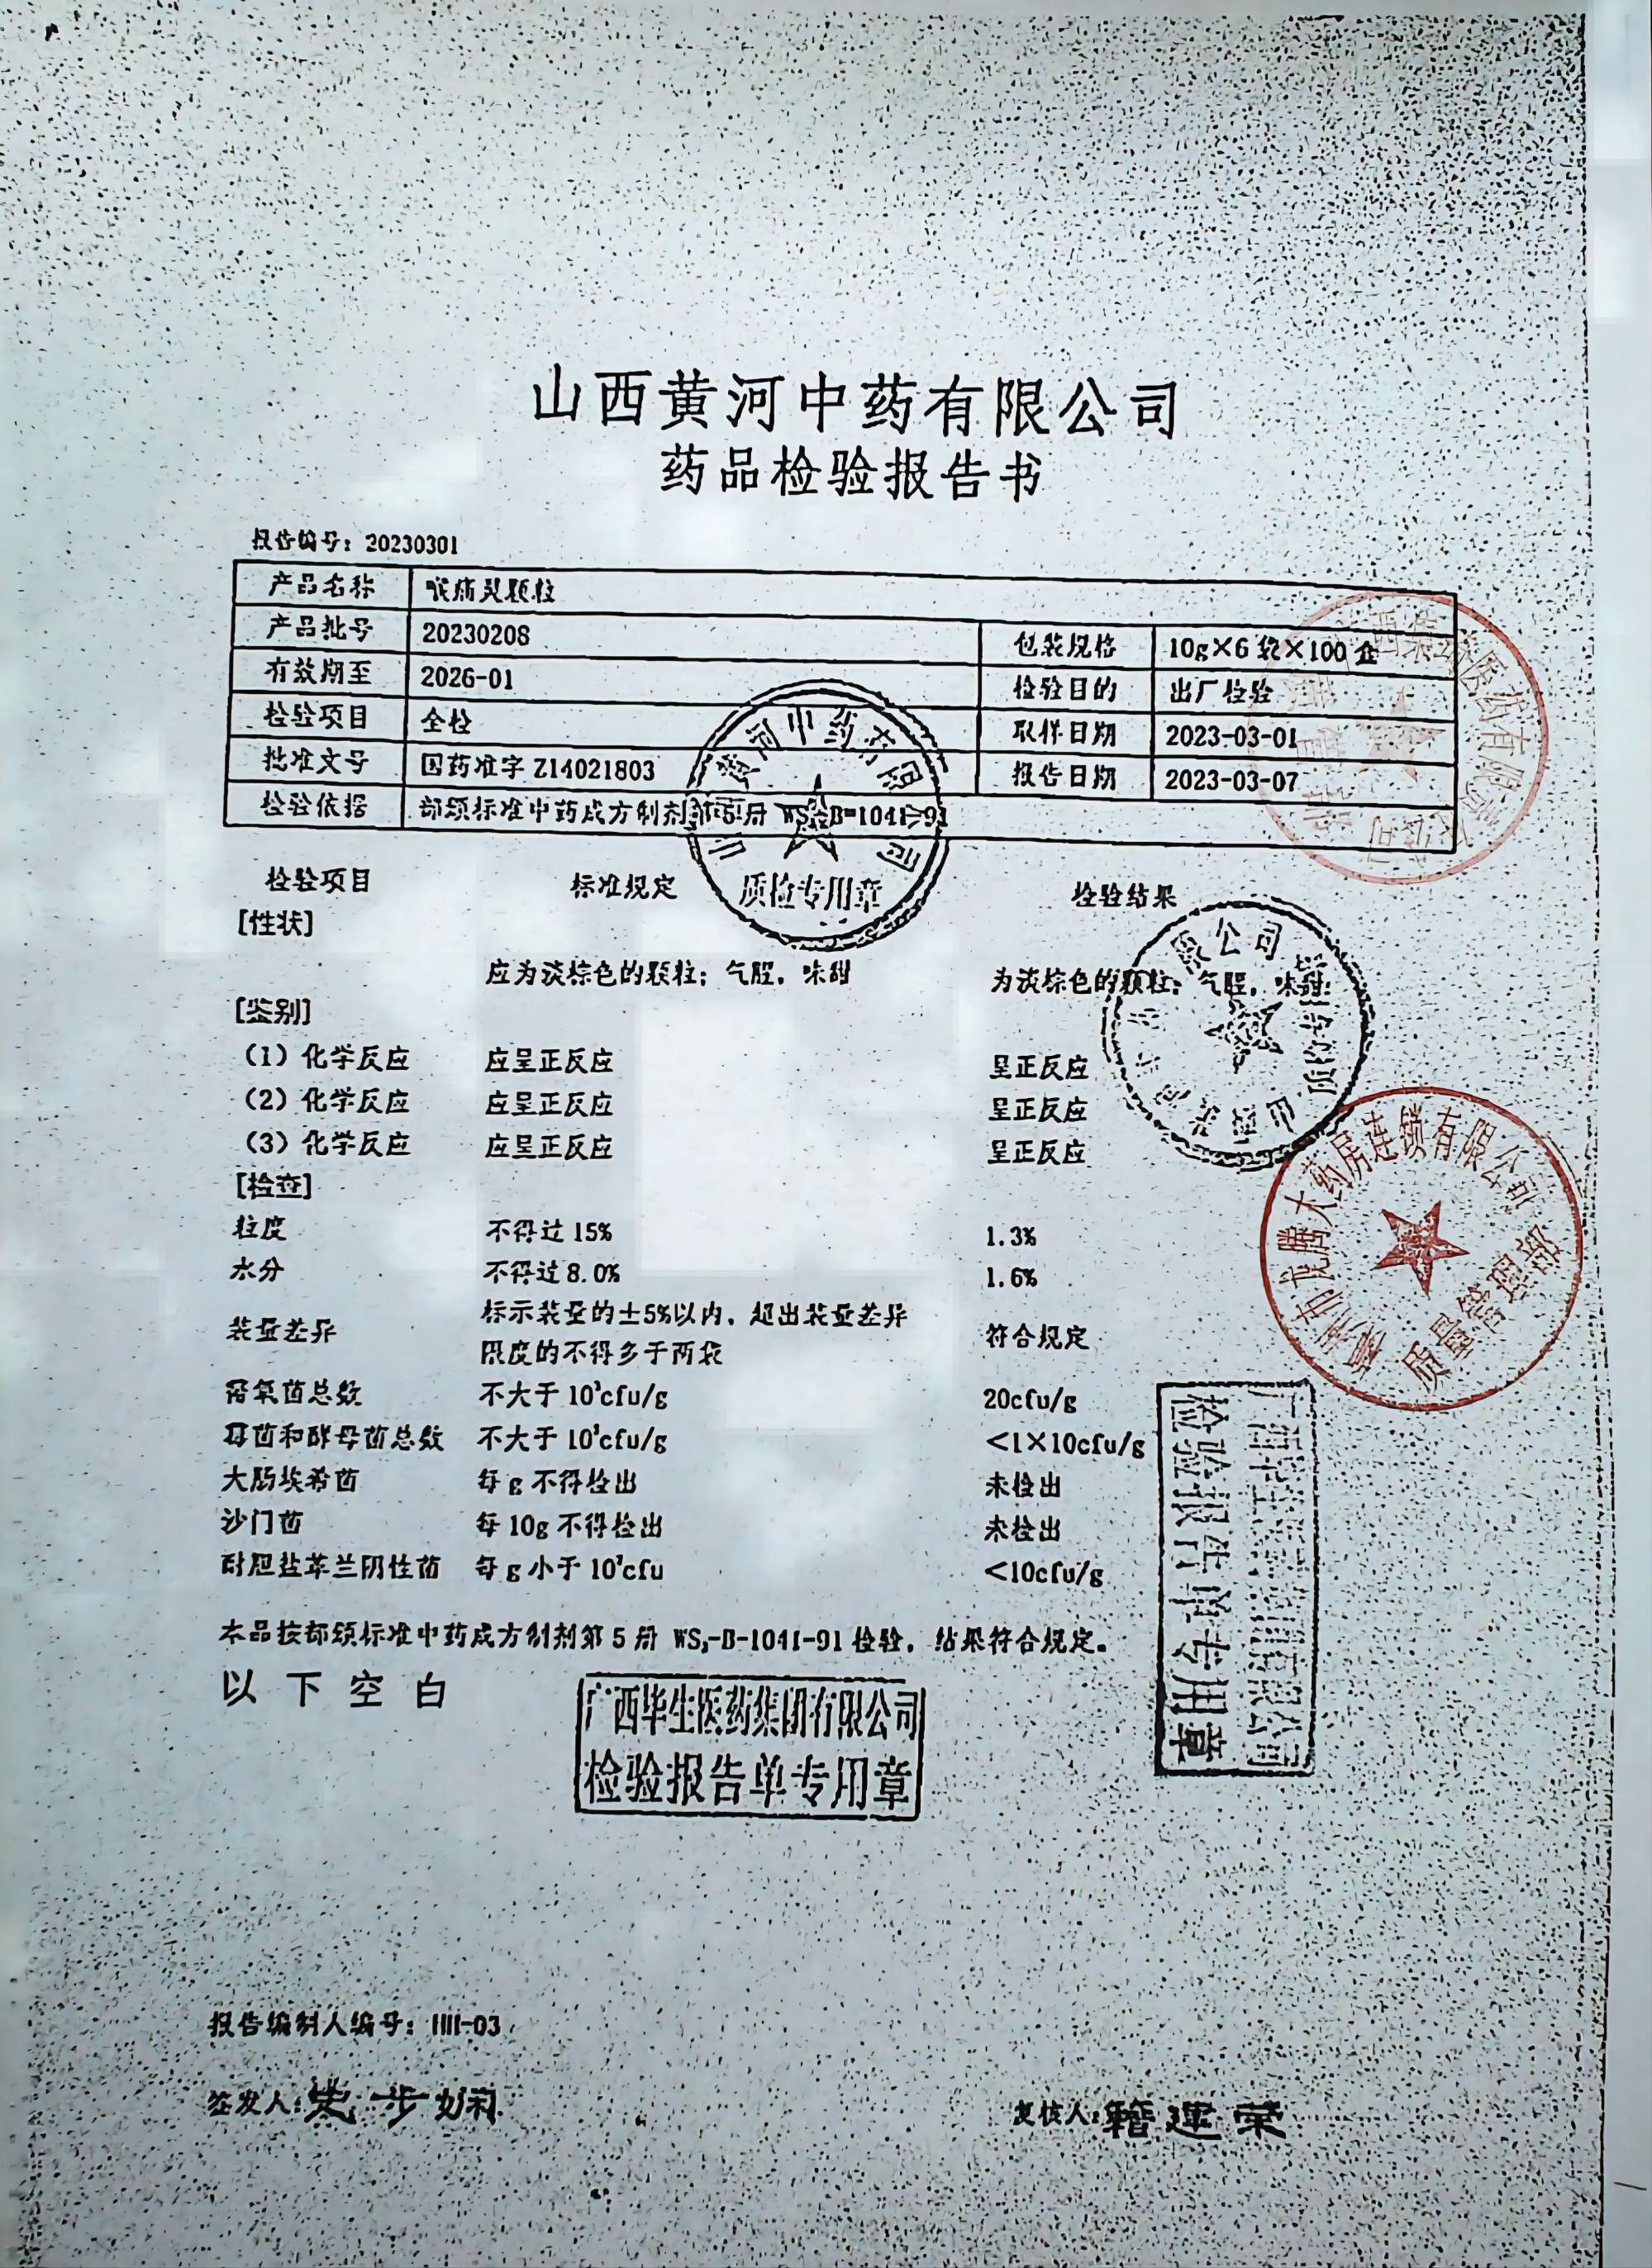 山西黄河中药有限公司
药品检验报告书
报告编号：20230301
产品名称 咽痛灵颗粒
产品批号 20230208 包装规格 10g×6袋×100盒
有效期至 2026-01 检验目的 出厂检验
检验项目 全检 取样日期 2023-03-01
批准文号 国药准字Z14021803 报告日期 2023-03-07
检验依据 部颁标准中药成方制剂第5册 WS₃-B-1041-91
质检专用章
检验项目 标准规定 检验结果
[性状]
应为淡棕色的颗粒；气腥，味甜 为淡棕色的颗粒；气腥，味甜
[鉴别]
（1）化学反应 应呈正反应 呈正反应
（2）化学反应 应呈正反应 呈正反应
（3）化学反应 应呈正反应 呈正反应
[检查]
粒度 不得过15% 1.3%
水分 不得过8.0% 1.6%
装量差异 标示装量的±5%以内，超出装量差异
限度的不得多于两袋 符合规定
需氧菌总数 不大于10³cfu/g 20cfu/g
霉菌和酵母菌总数 不大于10²cfu/g <1×10cfu/g
大肠埃希菌 每g不得检出 未检出
沙门菌 每10g不得检出 未检出
耐胆盐革兰阴性菌 每g小于10²cfu <10cfu/g
本品按部颁标准中药成方制剂第5册 WS₃-B-1041-91检验，结果符合规定。
以下空白
广西毕生医药集团有限公司
检验报告单专用章
市龙腾大药房连锁有限公司
质量管理部
检验报告单专用章
报告编制人编号：
签发人：
复核人：